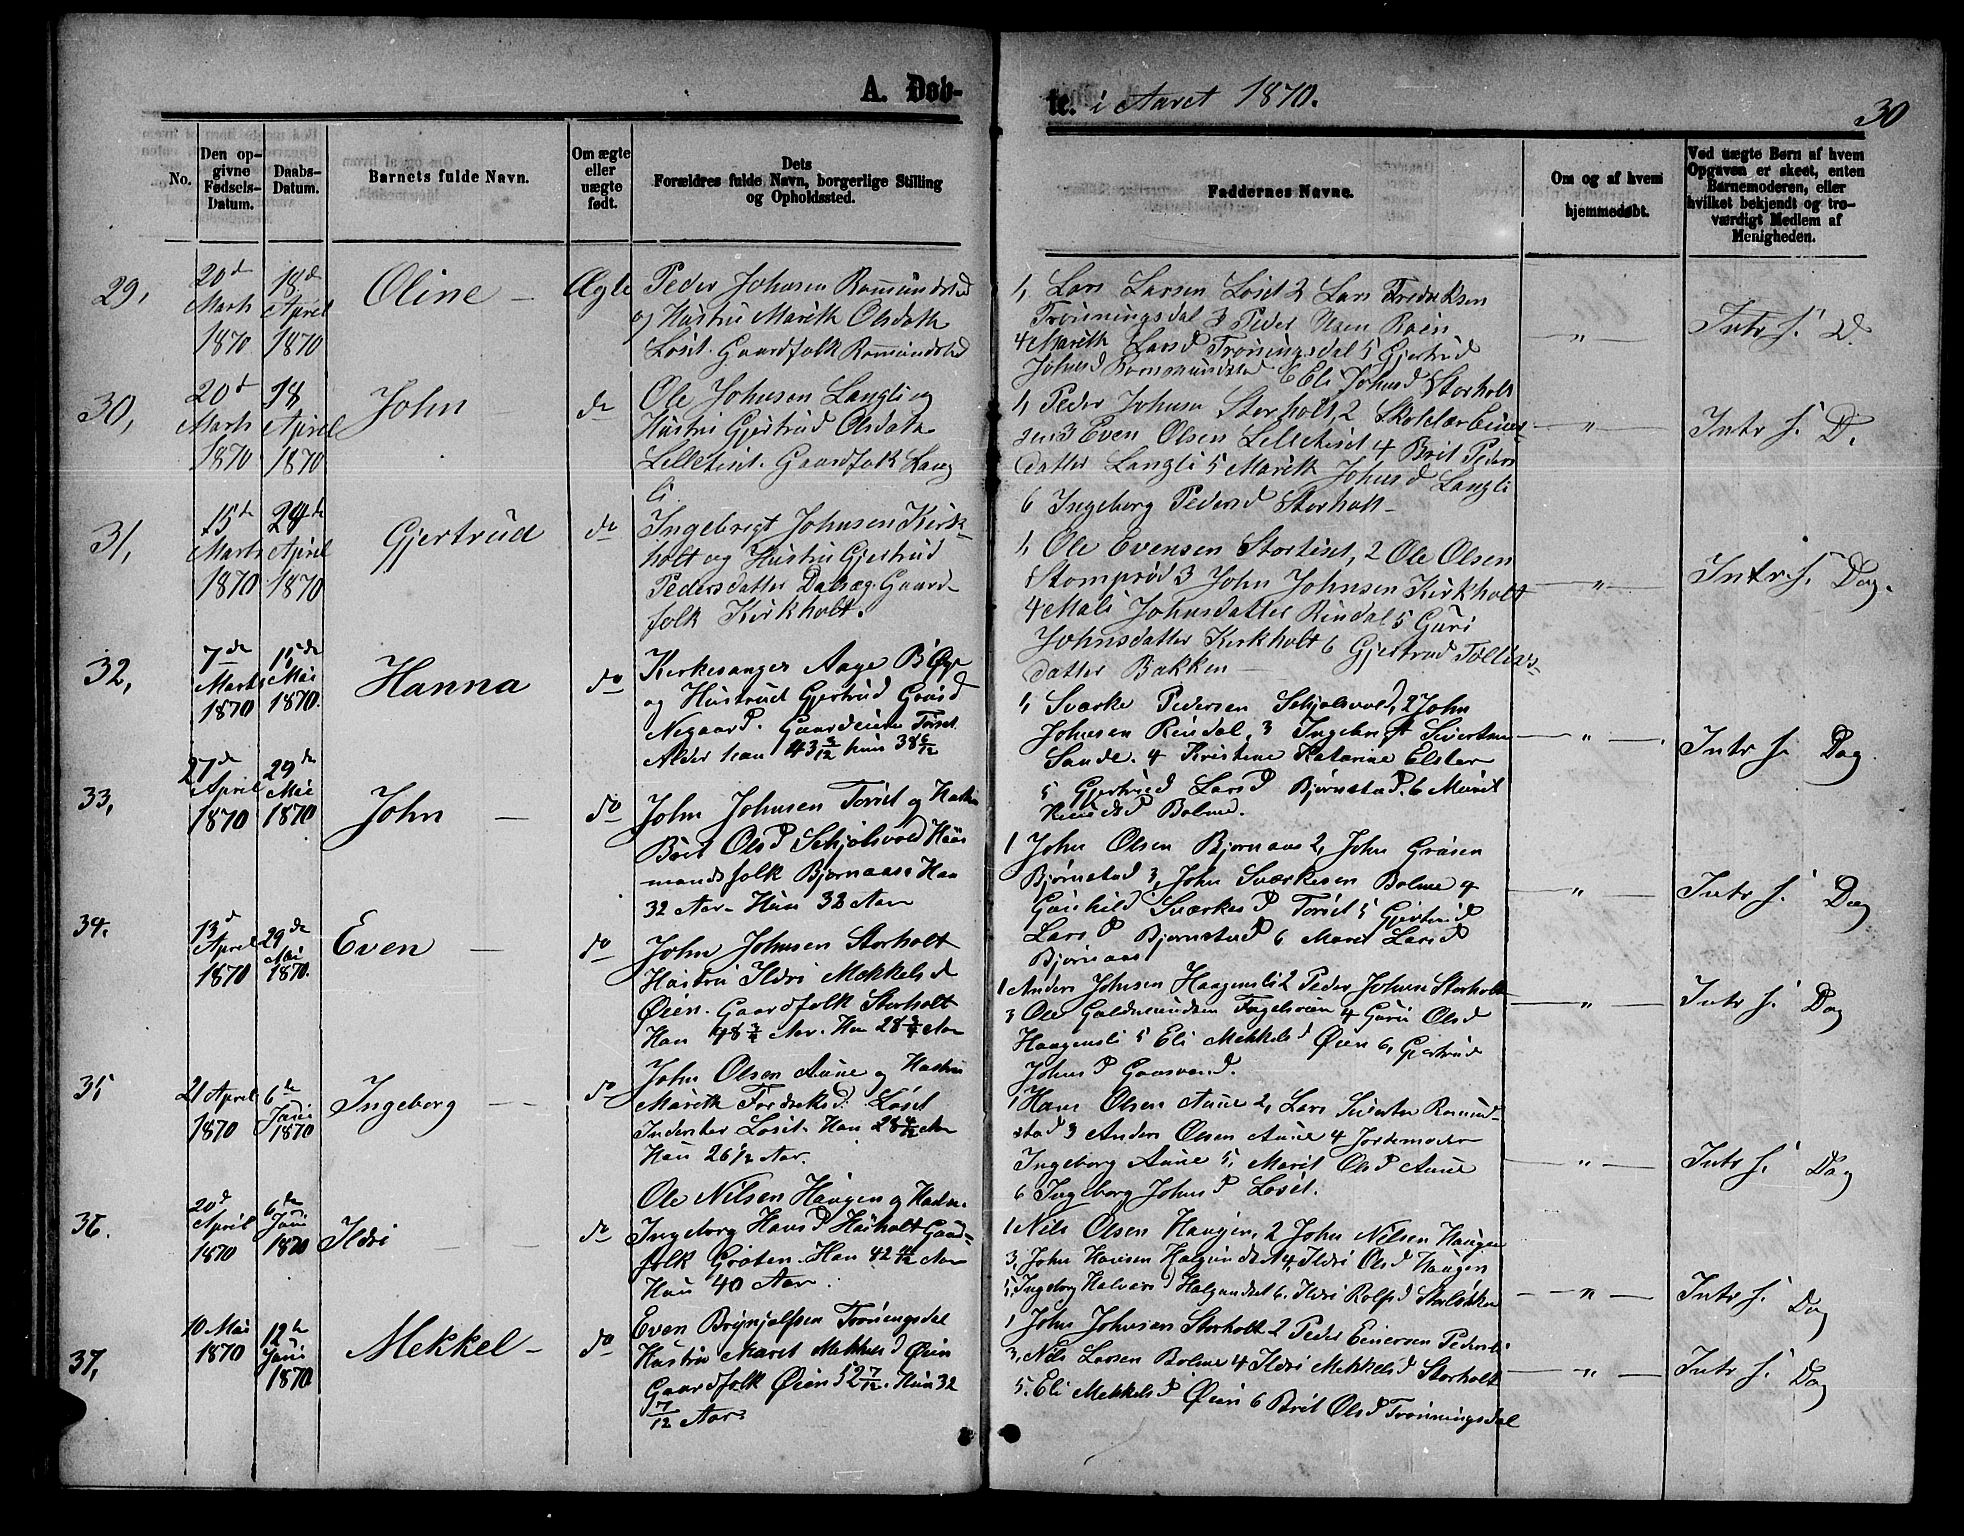 A. Døb-
te. i Aaret 1870.
30
No.
Den op-
givne
Fødsels-
Datum.
Daabs-
Datum.
Barnets fulde Navn.
Om ægte
eller
uægte
født.
Dets
Forældres fulde Navn, borgerlige Stilling
og Opholdssted.
Faddernes Navne.
Om og af hvem
hjemmedøbt.
Ved uægte Børn af hvem
Opgaven er skeet, enten
Barnemoderen, eller
hvilket bekjendt og tro-
værdigt Medlem af
Menigheden.
29,
20de
Marts
1870
18de
April
1870
Oline
Ægte
Peder Johnsen Romundstad
og Hustru Marith Olsdatter
Løset. Gaardfolk Romundstad
1, Lars Larsen Løset 2 Lars Fredriksen
Trønningsdal 3 Peder Olsen Røen
4 Marith Larsd Trønningsdal 5 Gjertrud
Johnsd Rommundstad 6 Eli Johnsd Storholt
"
Intr f. D.
30,
20de
Marts
1870
18
April
1870
John
do
Ole Johnsen Langli og
Hustru Gjertrud Olsdatr
Lilletiset. Gaardfolk Lang
li
1, Peder Johnsen Storholt 2 Skolelær Einar-
sen 3 Even Olsen Lilletiset 4 Brit Peders
datter Langli 5 Marith Johnsd Langli
6 Ingeborg Pedersd Storholt
"
Intr f. D.
31,
15de
Marts
1870
24de
April
1870
Gjertrud
do
Ingebrigt Johnsen Kirk-
holt og Hustru Gjertrud
Pedersdatter Dalsæg. Gaard
folk Kirkholt.
1, Ole Evensen Stortiset, 2 Ole Olsen
Stomprød 3 John Johnsen Kirkholt
4 Mali Johnsdatter Rindal 5 Guri
Johnsdatter Kirkholt 6 Gjertrud
datter Bakken
"
Intr. f. Dag.
32,
7de
Marts
1870
15de
Mai
1870.
Hanna
do
Kirkesanger Aage B Øye
og Hustrue Gjertrud
Negaard. Gaardeiere Torset
Alder han 43 hun 38
1, Sværke Pedersen Schjølsvold, 2 John
Johnsen Rindal, 3 Ingebrigt Sivertsen
Sande. 4 Kristine Katarine Elster
5 Gjertrud Larsd Bjørnstad. 6 Marit
Knudsd Bolme.
"
Intr f. Dag
33,
27de
April
1870
29de
Mai
1870
John
do
John Johnsen Torset og Hustru
Brit Olsd Schjølsvold Huus
mandsfolk Bjørnaas. Han
32 Aar. Hun 32 Aar
1 John Olsen Bjørnaas 2, John
Bjørnstad 3, John Sværkesen Bolme 4
Gunhild Sværkesd Torset 5 Gjertrud
Larsd Bjørnstad 6 Marit Larsd
Bjørnaas
"
Intr f. Dag
34.
13d
April
1870
29de
Mai
1870.
Even
do
John Johnsen Storholt
Hustru Ildri Mekkelsd
Øien. Gaardfolk Storholt
Han 48 Aar. Hun 28 Aar
1 Anders Johnsen Haagensli 2 Peder Johnsen Storholt
3 Ole Guldmundsen 4 Guri Olsd
Haagensli 5 Eli Mekkelsd Øien 6, Gjertrud
Johnsd Gaasvand.
"
Intr f. Dag
35
21 April
1870
6de
Juni
1870
Ingeborg
do
John Olsen Aune og Hustru
Marith Fordreksd. Løset
Inderster Løset. Han 28 Aar
Hun 26 1/2 Aar.
1 Hans Olsen Aune 2, Lars Sivertsen Romund-
stad 3 Anders Olsen Aune 4 Jordemoder
Ingeborg Aune 5, Marit Olsd Aune
6 Ingeborg Johnsd Løset.
"
Intr f. Dag
36.
20d
April
1870
6de
Juni
1870
Ildri
do
Ole Nilsen Haugen og Hustru
Ingeborg Hansd Husholt Gaard-
folk Grøten. Han 42 Aar
Hun 40 Aar
1 Nils Olsen Haugen, 2 John Nilsen Haugen
3, John Hansen Halgundset 4, Ildri Olsd Haugen
5, Ingeborg Halvorsd Halgundset 6. Ildri Rolfsd
"
Intr f. Dag
37,
10 Mai
1870
12te
Juni
1870
Mekkel
do
Even Brynjolfsen Trøningsdal
Hustru Maret Mekkelsd Øien
Gaardfolk Øien 52 7/12. Hun 32
7/12 Aar.
1 John Johnsen Storholt 2 Peder Einersen
3, Nils Larsen Bolme 4 Ildri Mekkelsd Storholt
5. Eli Mekkelsd Øien 6 Brit Olsd Trønningsdal
"
Intr f. Dag